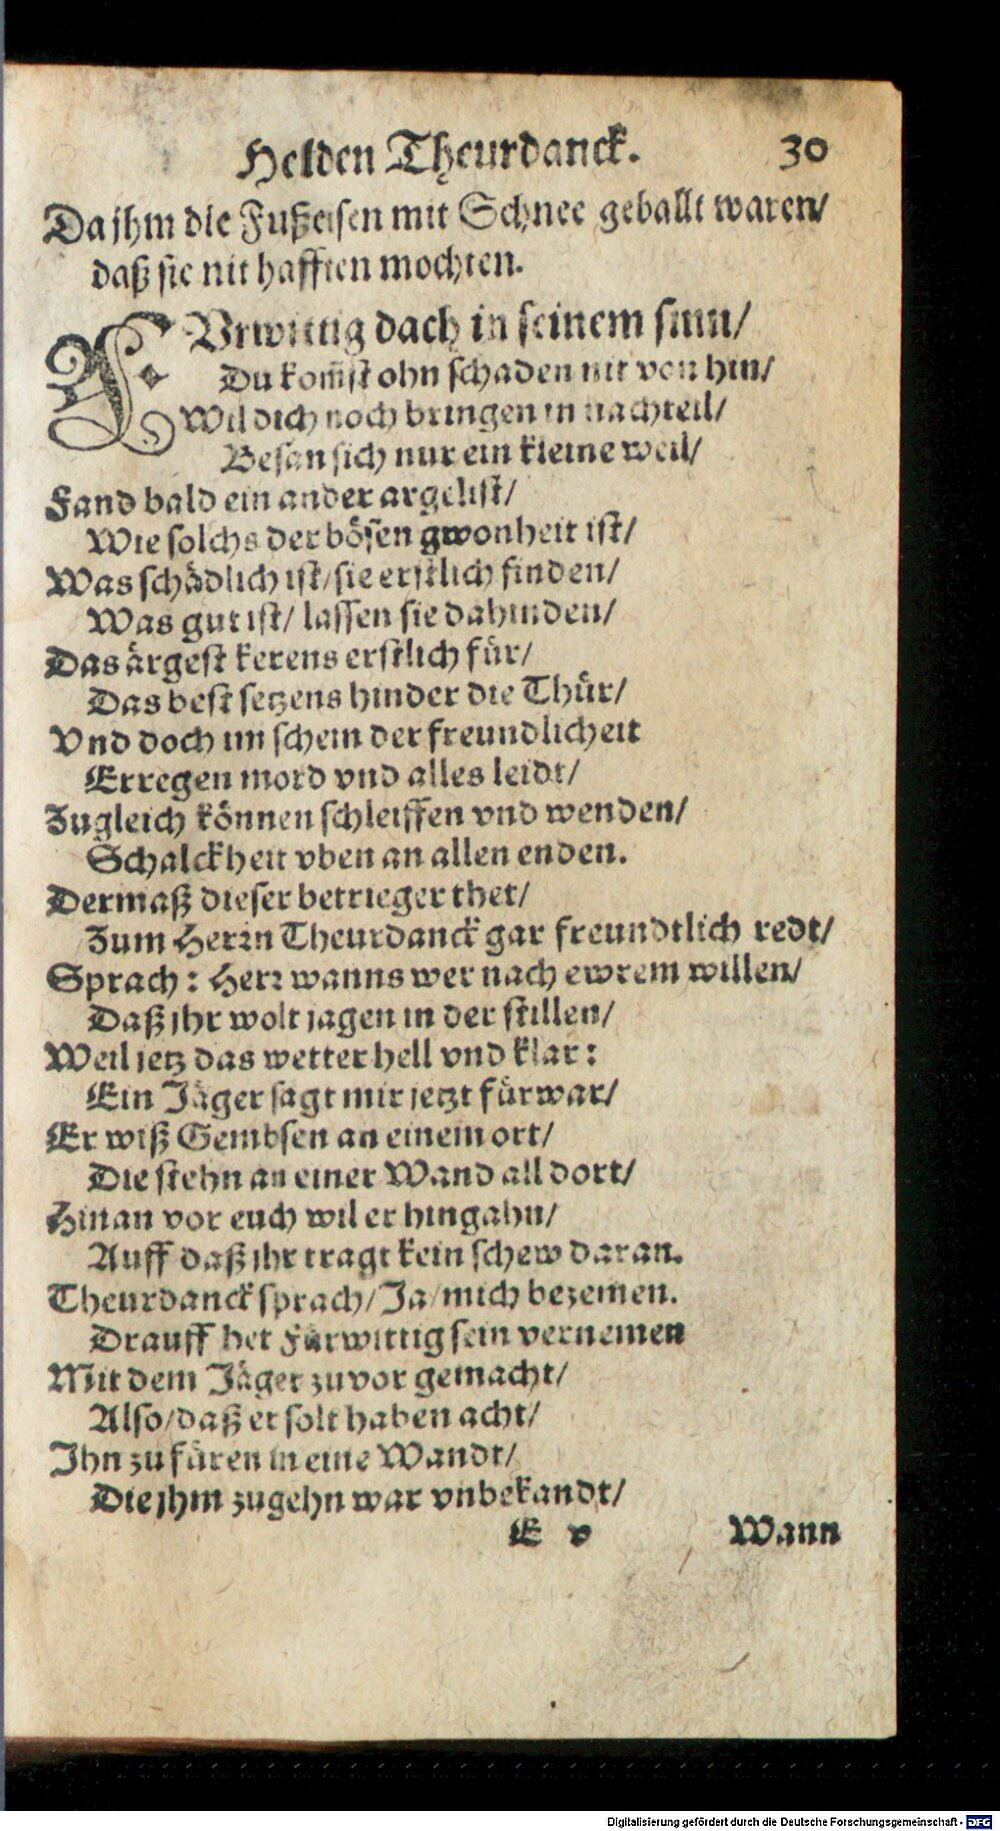 Helden Theurdanck. 30
Da jhm die Fußeisen mit Schnee geballt waren/
daß sie nit hafften mochten.
FVrwittig dach in seinem sinn/
Du kom̄st ohn schaden nit von hin/
Wil dich noch bringen in nachteil/
Besan sich nur ein kleine weil/
Fand bald ein ander argelist/
Wie solchs der bösen gwonheit ist/
Was schädlich ist/ sie erstlich finden/
Was gut ist/ lassen sie dahinden/
Das ärgest kerens erstlich für/
Das best setzens hinder die Thür/
Vnd doch im schein der freundlicheit
Erregen mord vnd alles leidt/
Zugleich können schleiffen vnd wenden/
Schalckheit vben an allen enden.
Dermaß dieser betrieger thet/
Zum Herrn Theurdanck gar freundtlich redt/
Sprach: Herr wanns wer nach ewrem willen/
Daß jhr wolt jagen in der stillen/
Weil jetz das wetter hell vnd klar:
Ein Jäger sagt mir jetzt fürwar/
Er wiß Gembsen an einem ort/
Die stehn an einer Wand all dort/
Hinan vor euch wil er hingahn/
Auff daß jhr tragt kein schew daran.
Theurdanck sprach/ Ja/ mich bezemen.
Drauff het Fürwittig sein vernemen
Mit dem Jäger zuvor gemacht/
Also/ daß er solt haben acht/
Ihn zu füren in eine Wandt/
Die jhm zugehn war vnbekandt/
E v Wann
Digitalisierung gefördert durch die Deutsche Forschungsgemeinschaft - DFG